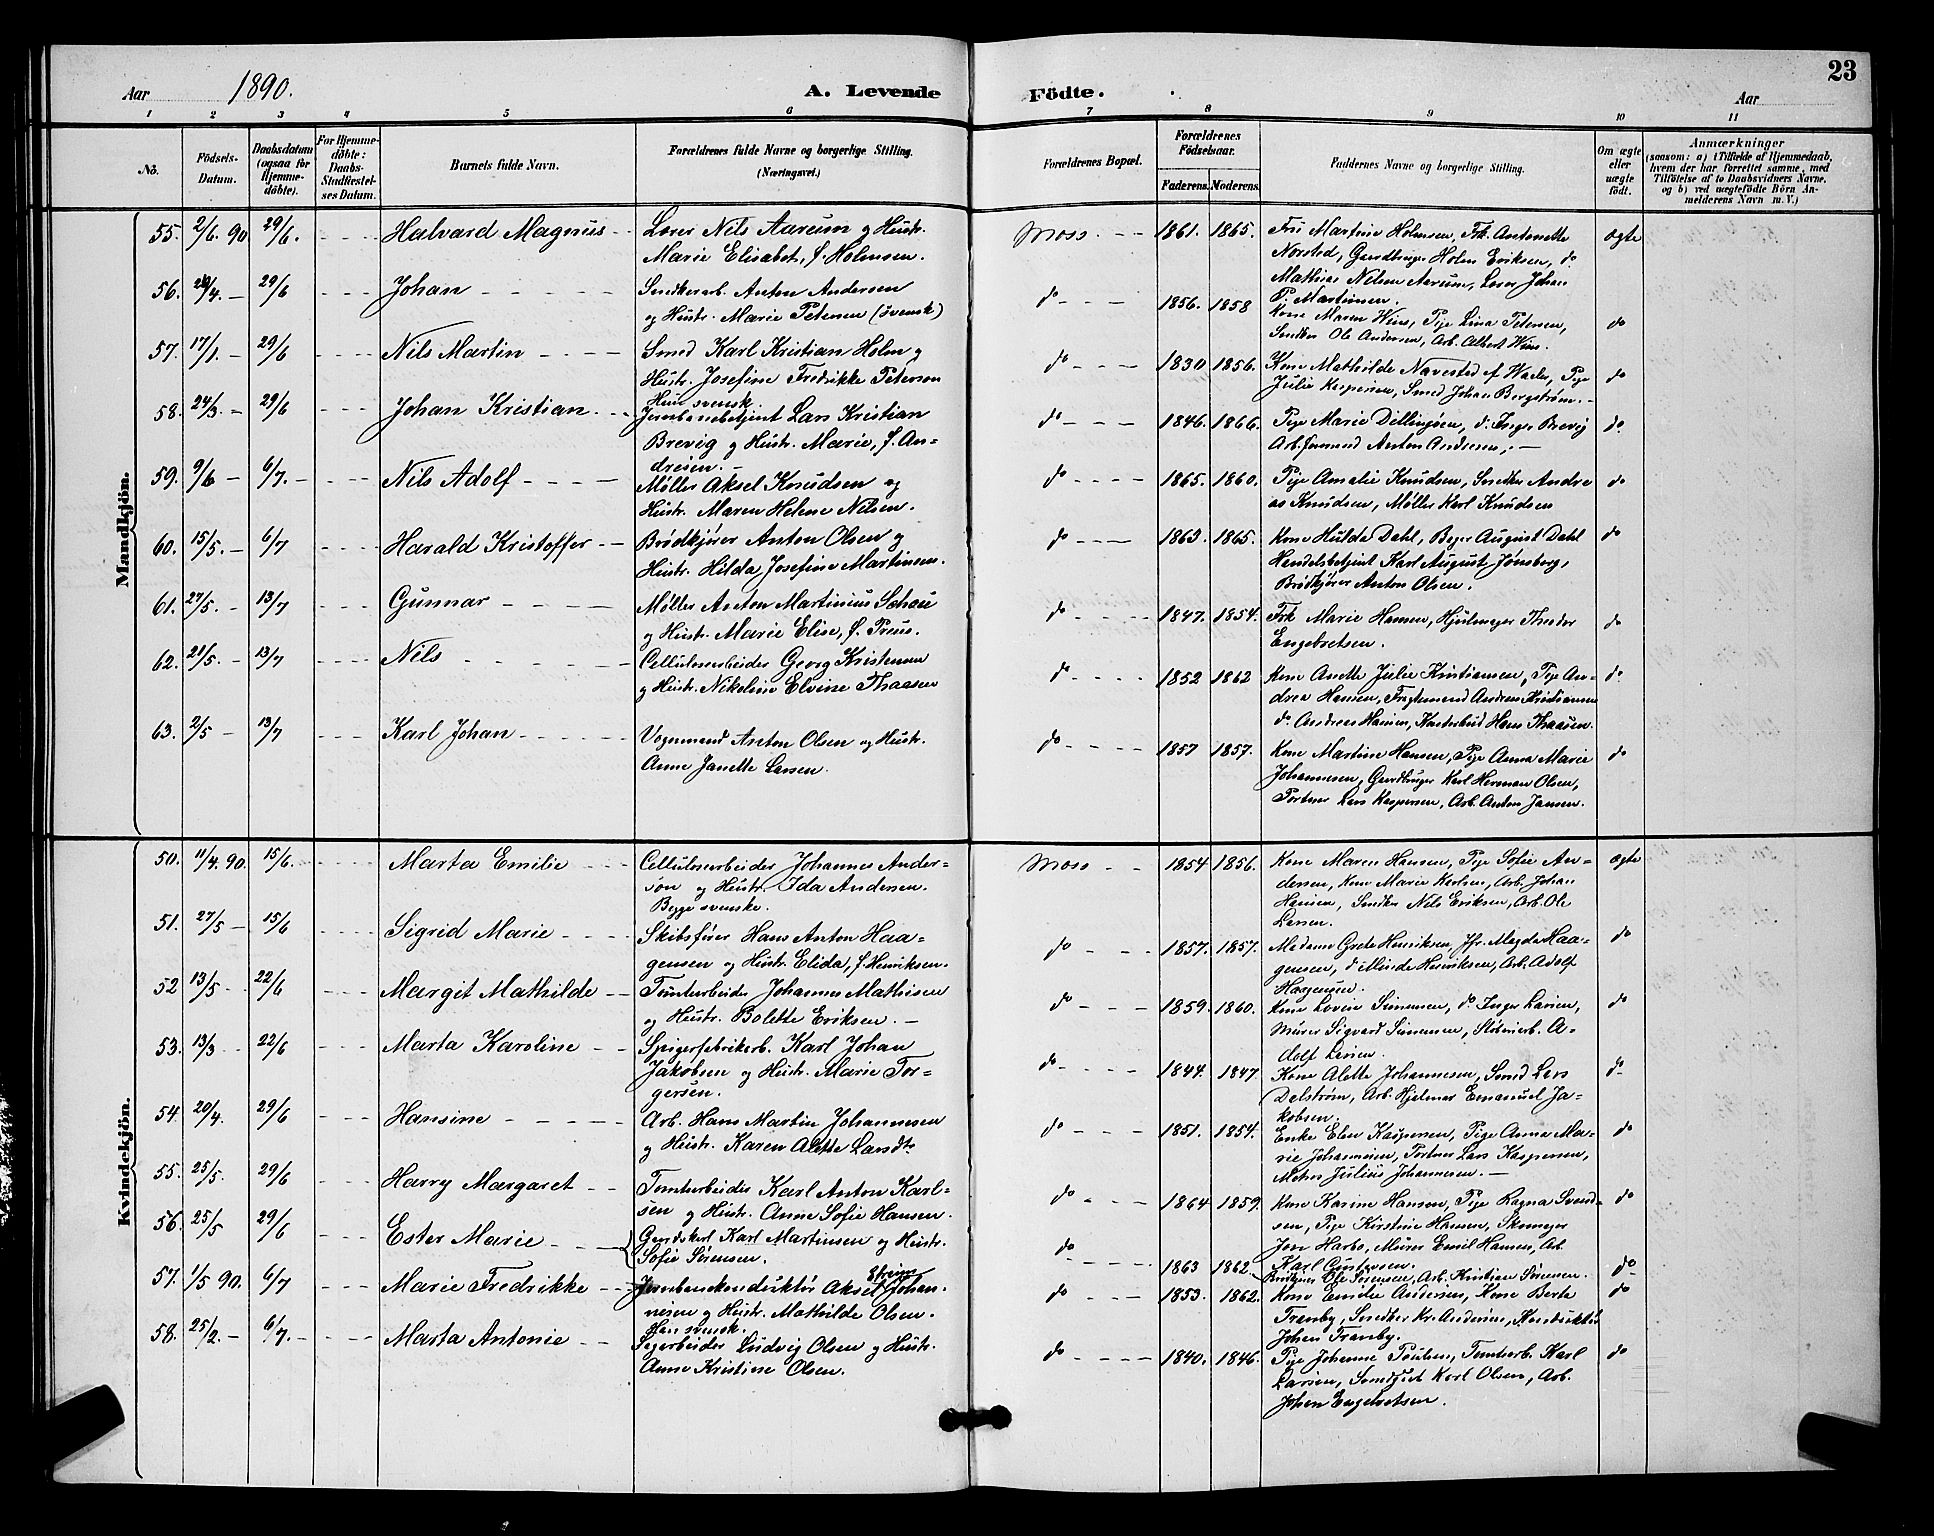 23
Aar 1890.
A. Levende Födte.
Aar
1 2 3 4 5 6 7 8 9 10 11
No.
Födsels-
Datum.
Daabsdatum
(ogsaa for
Hjemme-
döbte).
For Hjemme-
döbte:
Daabs-
Stadfæstel-
ses Datum.
Barnets fulde Navn.
Forældrenes fulde Navne og borgerlige Stilling.
(Næringsvei.)
Forældrenes Bopæl.
Forældrenes
Födselsaar.
Faderens. Moderens.
Faddernes Navne og borgerlige Stilling.
Om ægte
eller
uægte
födt.
Anmærkninger
(saasom: a) i Tilfælde af Hjemmedaab,
hvem der har forrettet samme, med
Tilföielse af to Daabsvidners Navne,
og b) ved uægtefödte Börn An-
melderens Navn m. V.)
Mandkjön.
55. 2/6. 90 29/6. Halvard Magnus
Lærer Nils Aarum og Hustr.
Marie Elisabet, f. Holmsen.
Moss 1861. 1865.
Fru Martine Holmsen, Frk. Antonette
Norsted, Gaardbruger Holm Eriksen, do
Mathias Nilsen Aarum, Lærer Johan
P. Martinsen.
ægte
56. 29/6 Johan
Snedkerarb. Anton Andersen
og Hustr. Marie Petersen (svensk)
do 1856. 1858
Kone Maren Wins, Pige Lina Petersen,
Snedker Ole Andersen, Arb. Albert Wins.
do
57. 17/1. 29/6 Nils Martin
Smed Karl Kristian Holm og
Hustr. Josefine Fredrikke Peterson
Hun svensk.
do 1830 1856.
Kone Mathilde Navestad af Waaler, Pige
Julie Kaspersen, Smed Johan Bergstrøm.
do
58. 24/3. 29/6 Johan Kristian
Jernbanebetjent Lars Kristian
Brevig og Hustr. Marie, f. An-
dresen.
do 1846. 1866.
Pige Marie Dillingøen, do Inger Brevig
Arb. formand Anton Andresen,
do
59. 9/6 6/7. Nils Adolf
Møller Aksel Knudsen og
Hustr. Maren Helene Nilsen.
do 1865. 1860.
Pige Amalie Knudsen, Snedker Andre
as Knudsen, Møller Karl Knudsen
do
60. 15/5. 6/7 Harald Kristoffer
Brødkjører Anton Olsen og
Hustr. Hilda Josefine Martinsen.
do 1863. 1865.
Kone Hulda Dahl, Bager August Dahl
Handelsbetjent Karl August Jønsberg,
Brødkjører Anton Olsen.
do
61. 27/5. 13/7 Gunnar
Møller Anton Martinius Schau
og Hustr. Marie Elise, f. Preus.
do 1847. 1854.
Frk Marie Hansen, Hjulmager Theodor
Engebretsen.
do
62. 21/5. 13/7 Nils
Cellulosearbeider Georg Kristensen
og Hustr. Nikoline Elvine Thaasen
do 1852 1862
Kone Anette Julie Kristiansen, Pige An-
drea Hansen, Fragtemand Andreas Kristiansen
do Andreas Hansen, Hans Thaasen.
do
63. 2/5 13/7 Karl Johan
Vognmand Anton Olsen og Hustr.
Anne Janette Larsen.
do 1857 1857.
Kone Martine Hansen, Pige Anna Marie
Johannesen, Gaardbruger Karl Herman Olsen,
Portner Lars Kaspersen, Arb. Anton Jansen.
do
Kvindekjön.
50. 11/4. 90. 15/6. Marta Emilie
Cellulosearbeider Johannes Ander-
son og Hustr. Ida Andersen.
Begge svenske.
Moss 1854 1856.
Kone Maren Hansen, Pige Sofie An-
dersen, Kone Marie Karlsen, Arb. Johan
Hansen, Snedker Nils Eriksen, Arb. Ole
Larsen.
ægte
51. 27/5 15/6 Sigrid Marie
Skibsfører Hans Anton Haa-
gensen og Hustr. Elida, f. Henriksen.
do 1857. 1857.
Madame Grete Henriksen, Jfr. Magda Haa-
gensen, do Minda Henriksen, Arb. Adolf
Haagensen.
do
52 13/5 22/6 Margit Mathilde
Tomtearbeider Johannes Mathisen
og Hustr. Bolette Eriksen.
do 1859. 1860.
Kone Lovise Simensen, do Inger Larsen,
Murer Sigvard Simensen, Støberiarb. A-
dolf Larsen.
do
53. 13/3 22/6 Marta Karoline
Spigerfabrikarb. Karl Johan
Jakobsen og Hustr. Marie Tor-
gersen.
do 1844. 1847
Kone Alette Johannesen, Smed Lars
Dalstrøm, Arb. Hjalmar Emanuel Ja-
kobsen.
do
54. 20/4. 29/6 Hansine
Arb. Hans Martin Johannesen
og Hustr. Karen Alette
do 1851. 1854.
Enke Elen Kaspersen, Pige Anna Ma-
rie Johannesen, Portner Lars Kaspersen,
Matros Julius Johannesen.
do
55. 25/5. 29/6 Harry Margaret
Tomtearbeider Karl Anton Karl-
sen og Hustr. Anne Sofie Hansen.
do 1864 1859.
Kone Karine Hansen, Pige Ragna Svend-
sen, Pige Kirstine Hansen, Skomager
Jon Harbo, Murer Emil Hansen, Arb.
Karl Gustavsen.
do
56. 25/5 29/6 Ester Marie
Gaardskarl Karl Martinsen og Hustr.
Sofie Sørensen.
do 1863 1862.
Ole Sørensen, Arb. Kristian Sørensen.
do
57. 1/5 90. 6/7 Marie Fredrikke
Jernbanekonduktør Aksel Efraim Johan-
nesen og Hustr. Mathilde Olsen.
Han svensk.
do 1853. 1862.
Kone Emilie Andersen, Kone Berte
Tranby, Snedker Kr. Andersen, Konduktør
Johan Tranby.
do
58. 25/2. 6/7. Marta Antonie
Sagarbeider Ludvig Olsen og Hustr.
Anne Kristine Olsen.
do 1840. 1846.
Pige Johanne Poulsen, Tomtearb. Karl
Larsen, Smedgut Karl Olsen, Arb.
Johan Engebretsen.
do